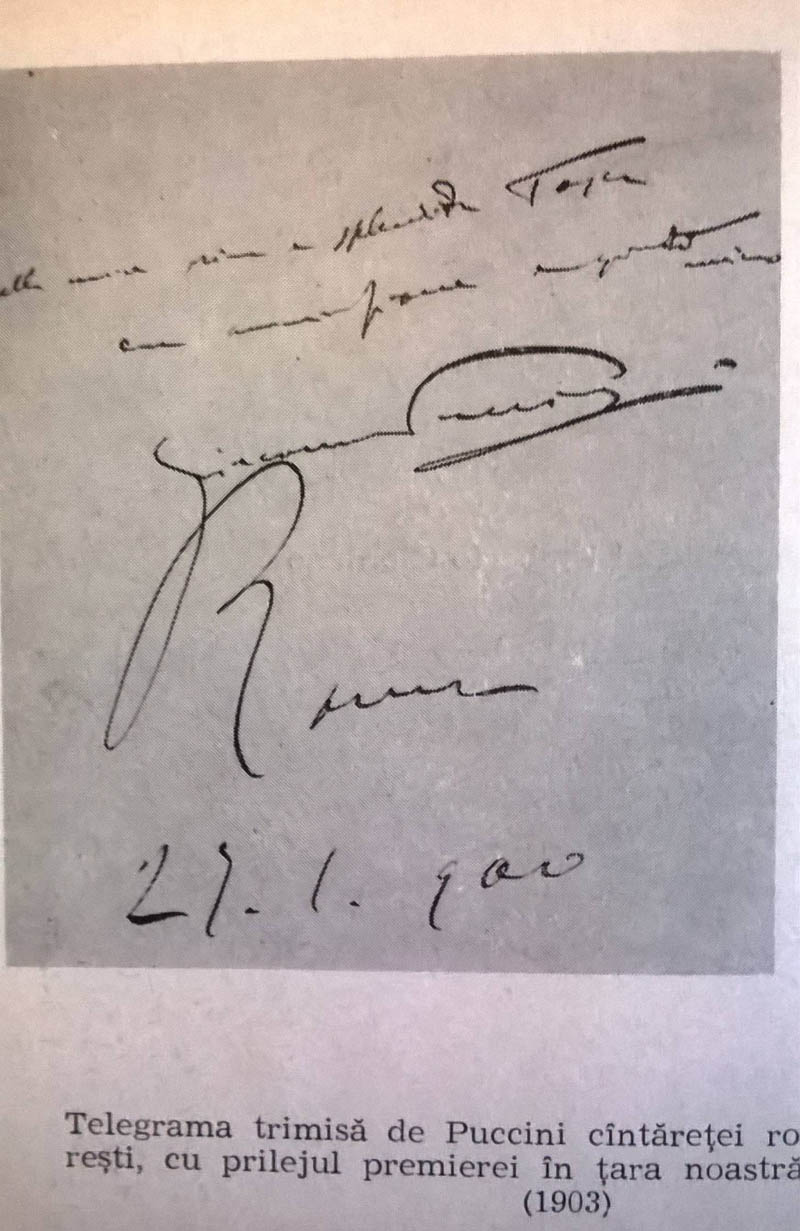 alla mia prima e splendida Tosca
con
Giacomo Puccini
Roma
27. 1. 900
Telegrama trimisă de Puccini cîntăreţei ro
reşti, cu prilejul premierei în ţara noastră
(1903)